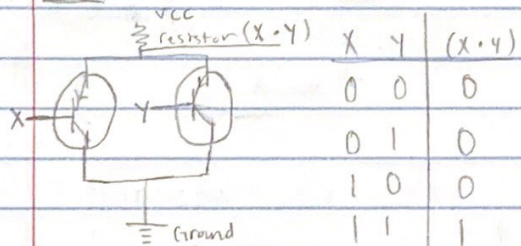 VCC
resistor (X · Y)
X
Y
Ground
X Y (X · Y)
0 0 0
0 1 0
1 0 0
1 1 1